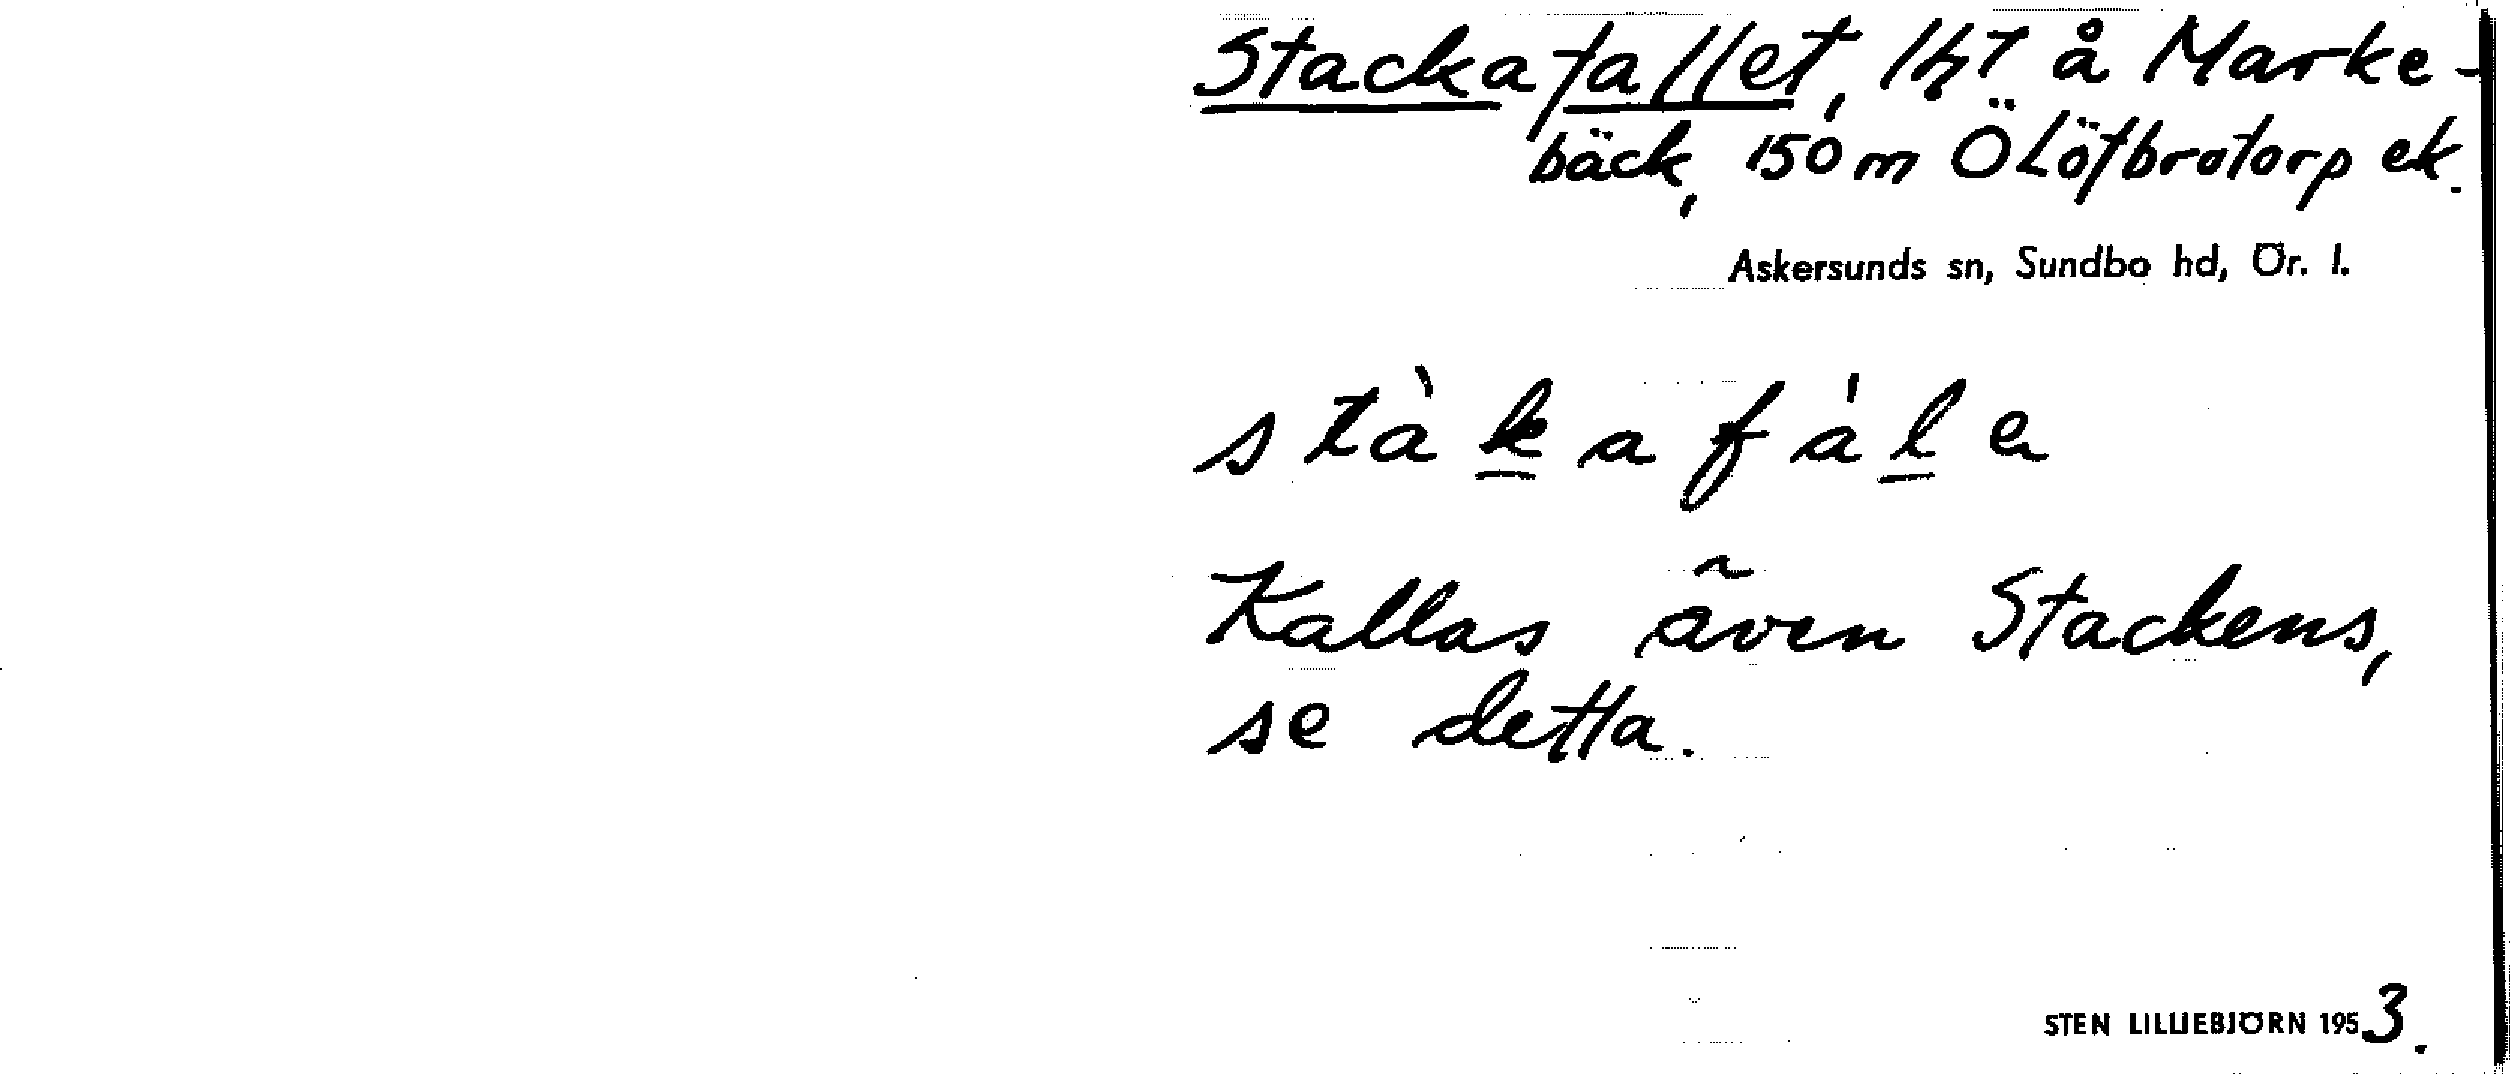 Stackafallet, lht å Marke-
bäck, 150 m Ö Löfbrotorp ek.
Askersunds sn, Sundbo hd, Ör. l.
stàkafále
Kallas även Stackens,
se detta.
STEN LILLIEBJÖRN 1953.